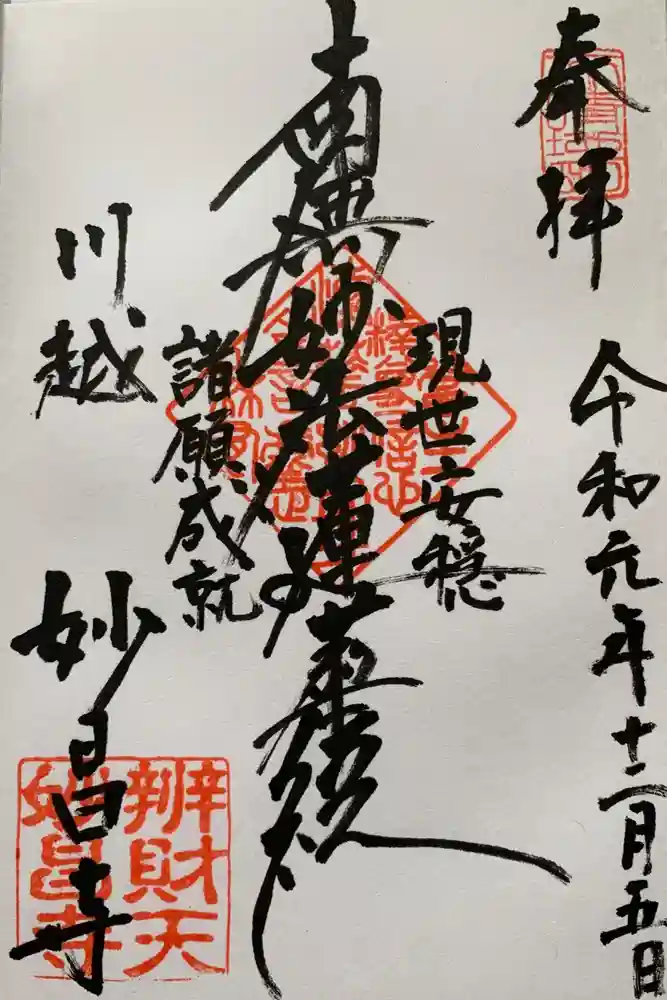 奉拝
令和元年十二月五日
現世安穏
南無妙法蓮華経
諸願成就
川越
妙昌寺
辨財天
妙昌寺